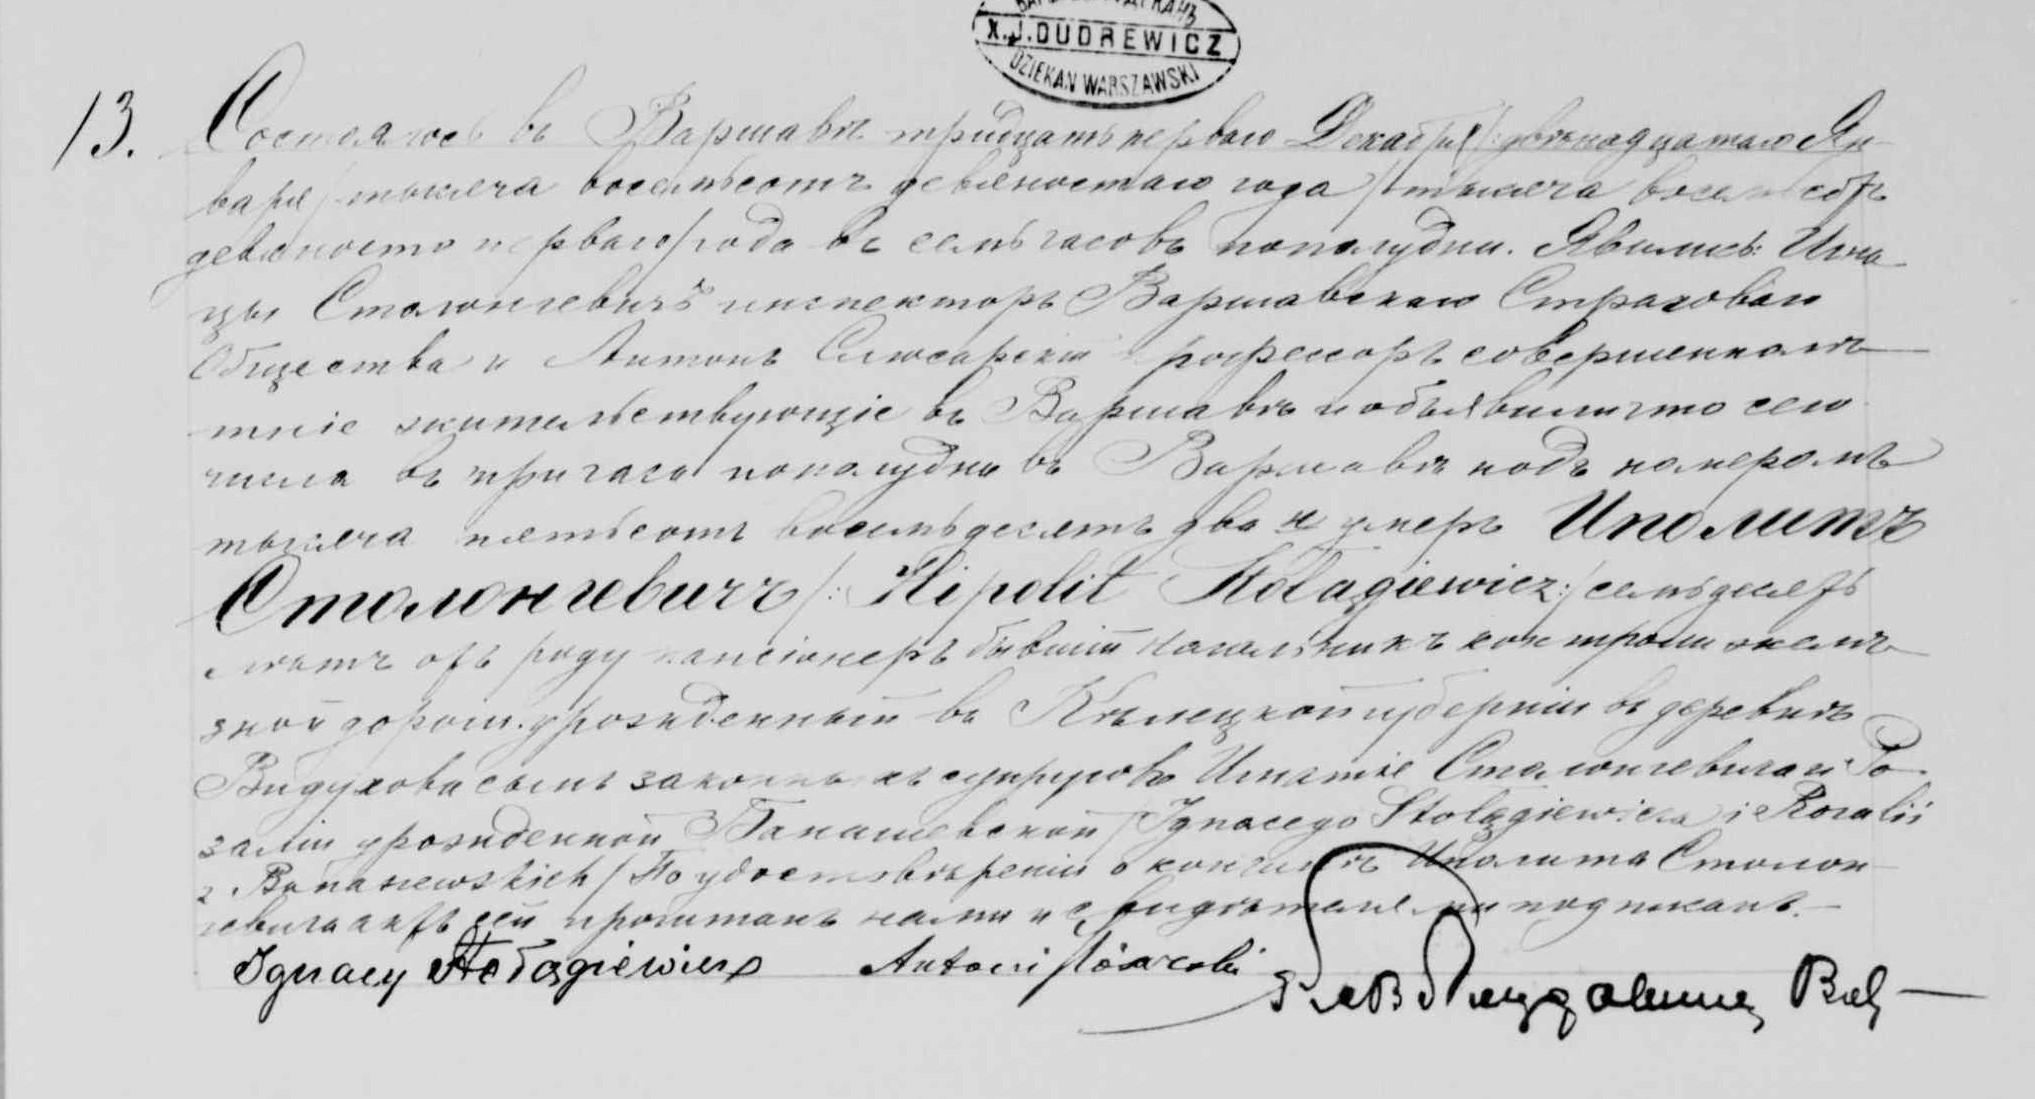 X. J. DUDREWICZ
DZIEKAN WARSZAWSKI
13. Состоялось въ Варшавѣ тридцать перваго Декабря /:двѣнадцатаго Ян-
варя/ тысяча восемьсотъ девяностаго года /тысяча восемьсотъ
девяносто перваго/ года въ семь часовъ пополудни. Явились: Игна-
цы Столонгевичъ инспекторъ Варшавскаго Страховаго
Общества и Антонъ Слюсарскій профессоръ совершеннолѣ-
тніе жительствующіе въ Варшавѣ и объявили что сего
числа въ три часа пополудни въ Варшавѣ подъ номеромъ
тысяча пятьсотъ восемьдесятъ два умеръ Иполитъ
Столонгевичъ /:Hipolit Stolągiewicz:/ семьдесятъ
лѣтъ отъ роду пансіонеръ бывшій начальникъ контроли желѣ-
зной дороги урожденный въ Кѣлецкой губерніи въ деревнѣ
Видухова сынъ законныхъ супруговъ Игнатія Столонгевича и Ро-
заліи урожденной Банашевской /Ignacego Stolągiewicza i Rozalii
z Banaszewskich/ По удостовѣреніи о кончинѣ Иполита Столон-
гевича актъ сей прочитанъ нами и свидѣтелями подписанъ.
Ignacy Stołągiewicz Antoni Ślósarski